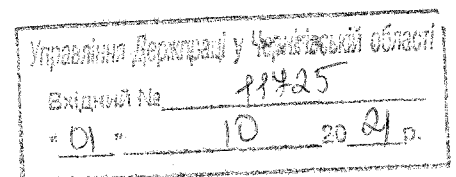 Управління Держпраці у Чернігівській області
Вхідний № 11725
"01" 10 2021 р.